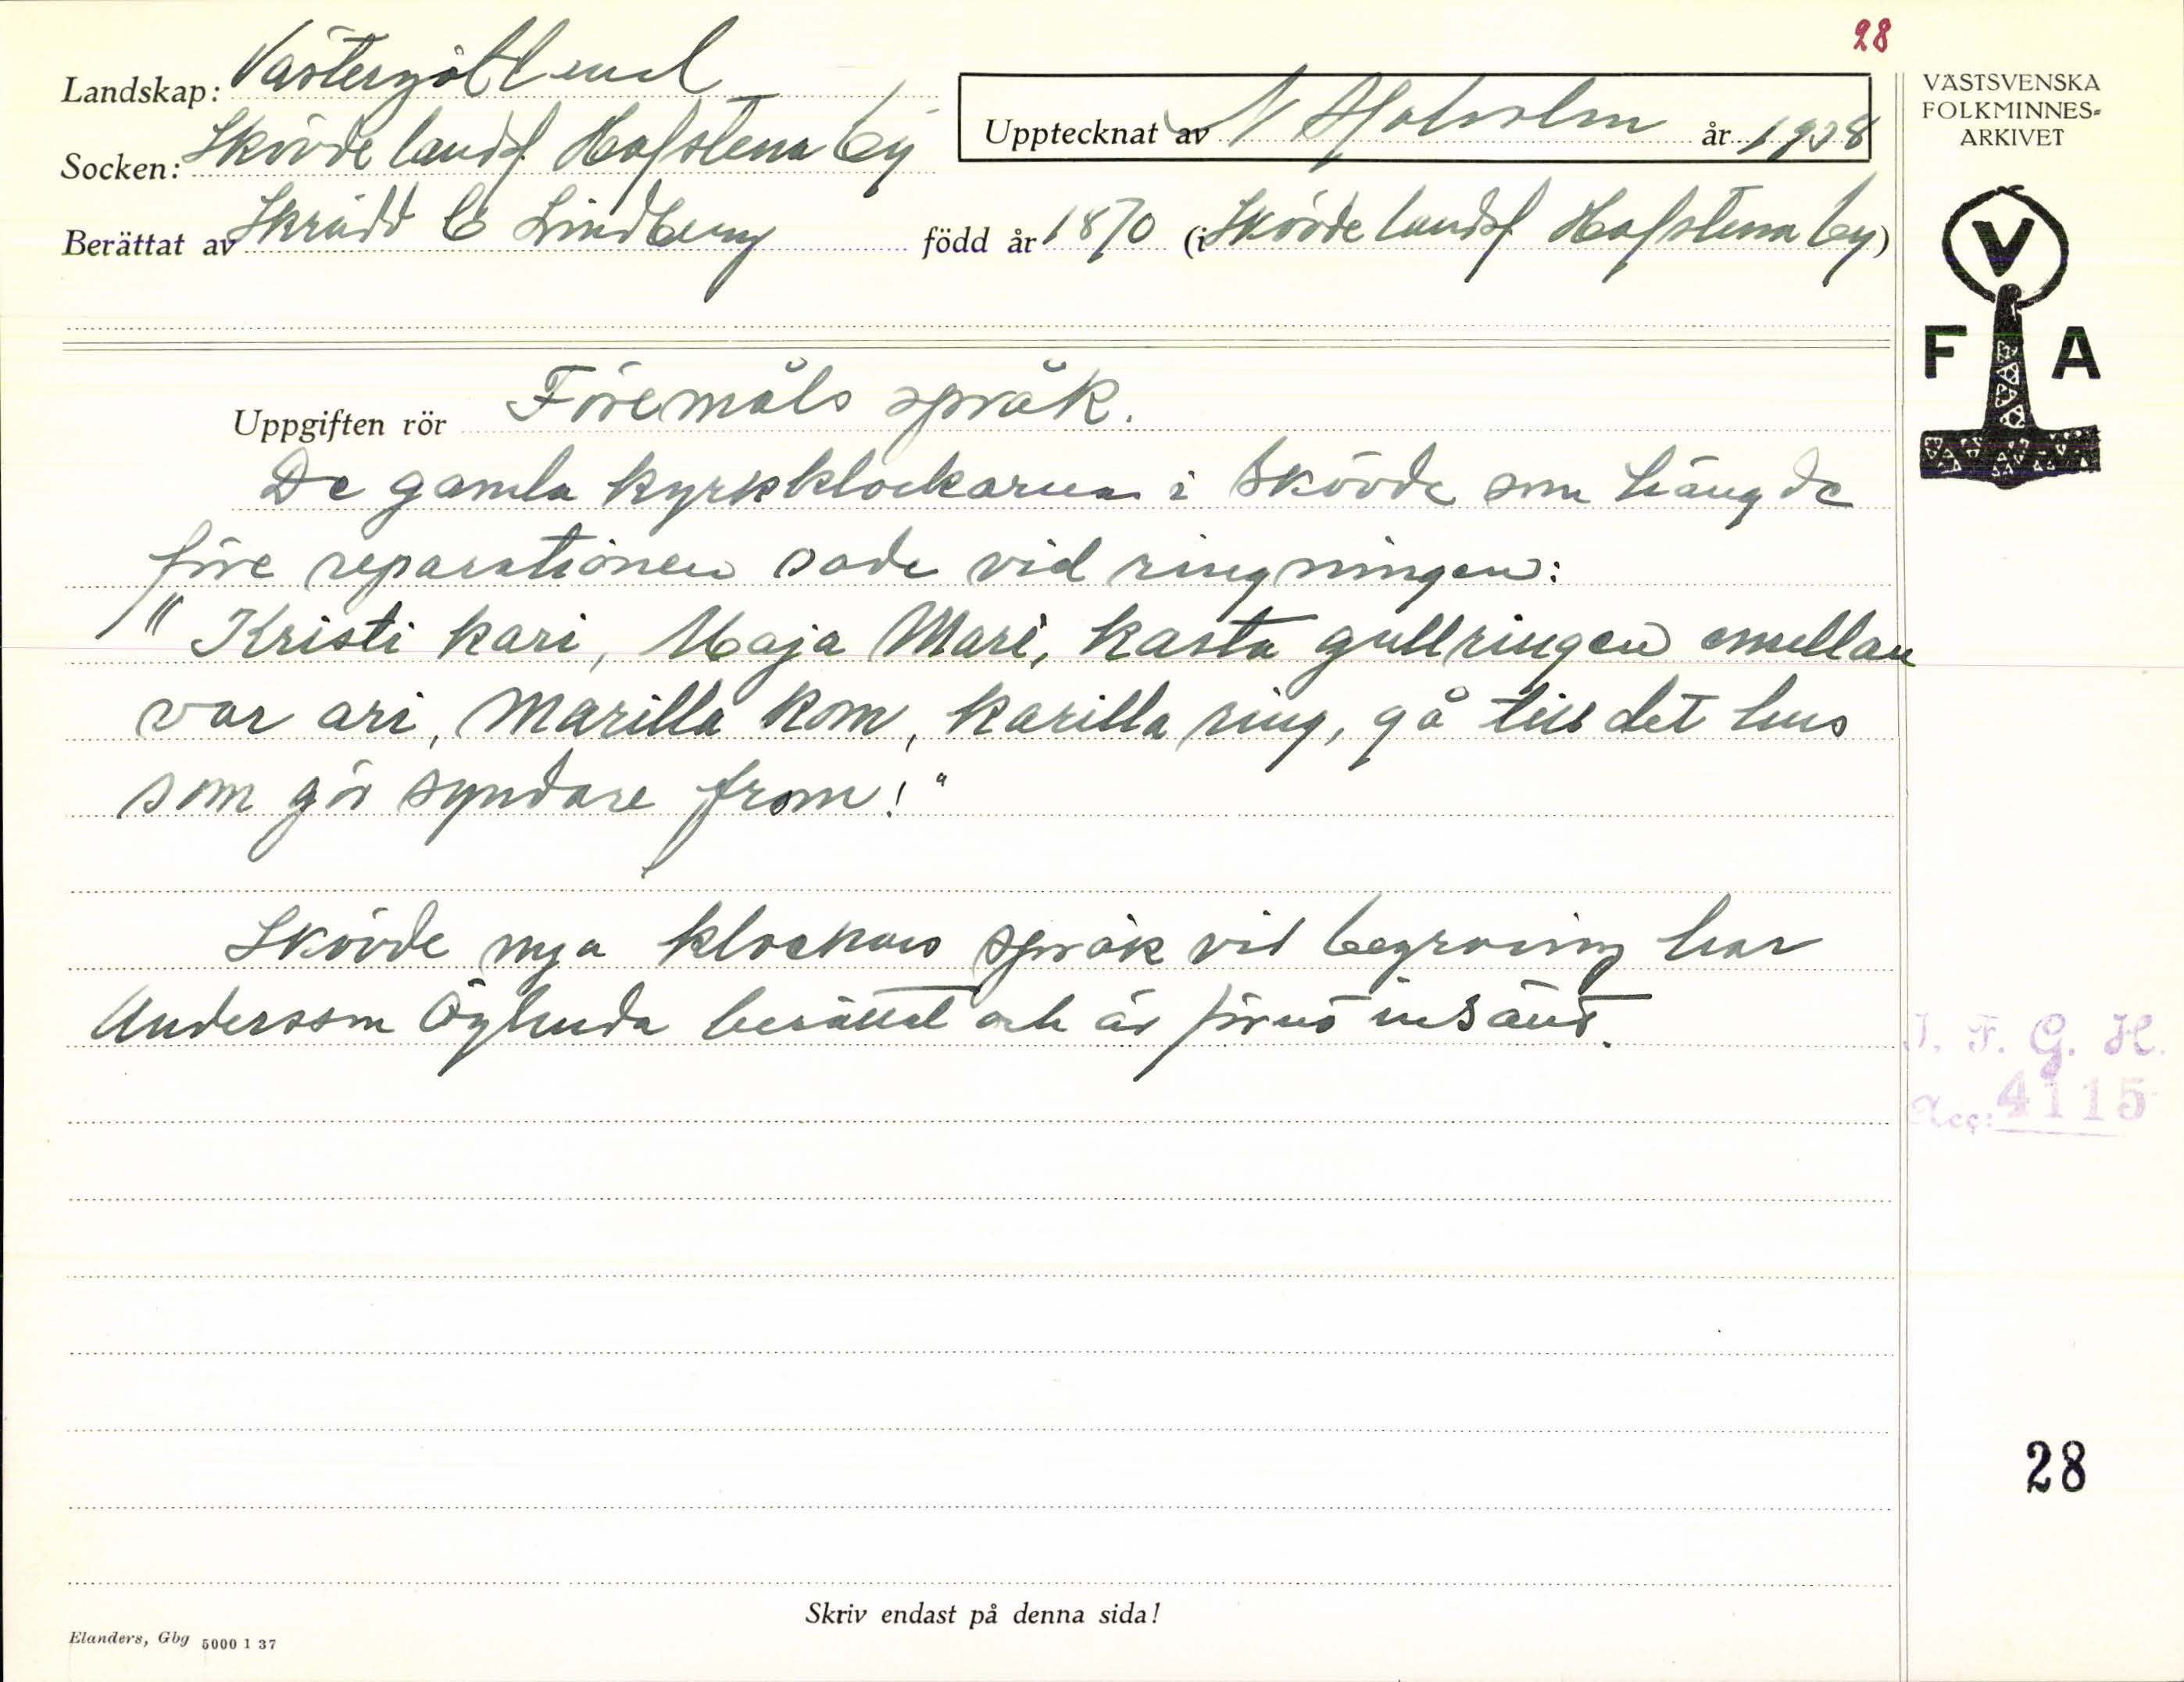 28
Landskap: Västergötland
Socken: Skövde landsf. Hafstena by
Upptecknat av N Holmström år 1938
Berättat av Skrädd C Lindberg född år 1870 (i Skövde landsf Hafstena by)
VÄSTSVENSKA
FOLKMINNES-
ARKIVET
V
F A
Uppgiften rör Föremåls språk.
De gamla kyrkklockarna i Skövde som hängde
före reparationen sade vid ringningen:
"Kristi kari, Maja Mari, kasta gullringen emellan
var ari, Marilla kom, karilla ring, gå till det hus
som gör syndare from!"
Skövde nya klockors språk vid begravning har
Andersson Öglunda berättat och är förut insänt.
I. F. G. H.
Acc: 4115
28
Skriv endast på denna sida!
Elanders, Gbg 5000 1 37